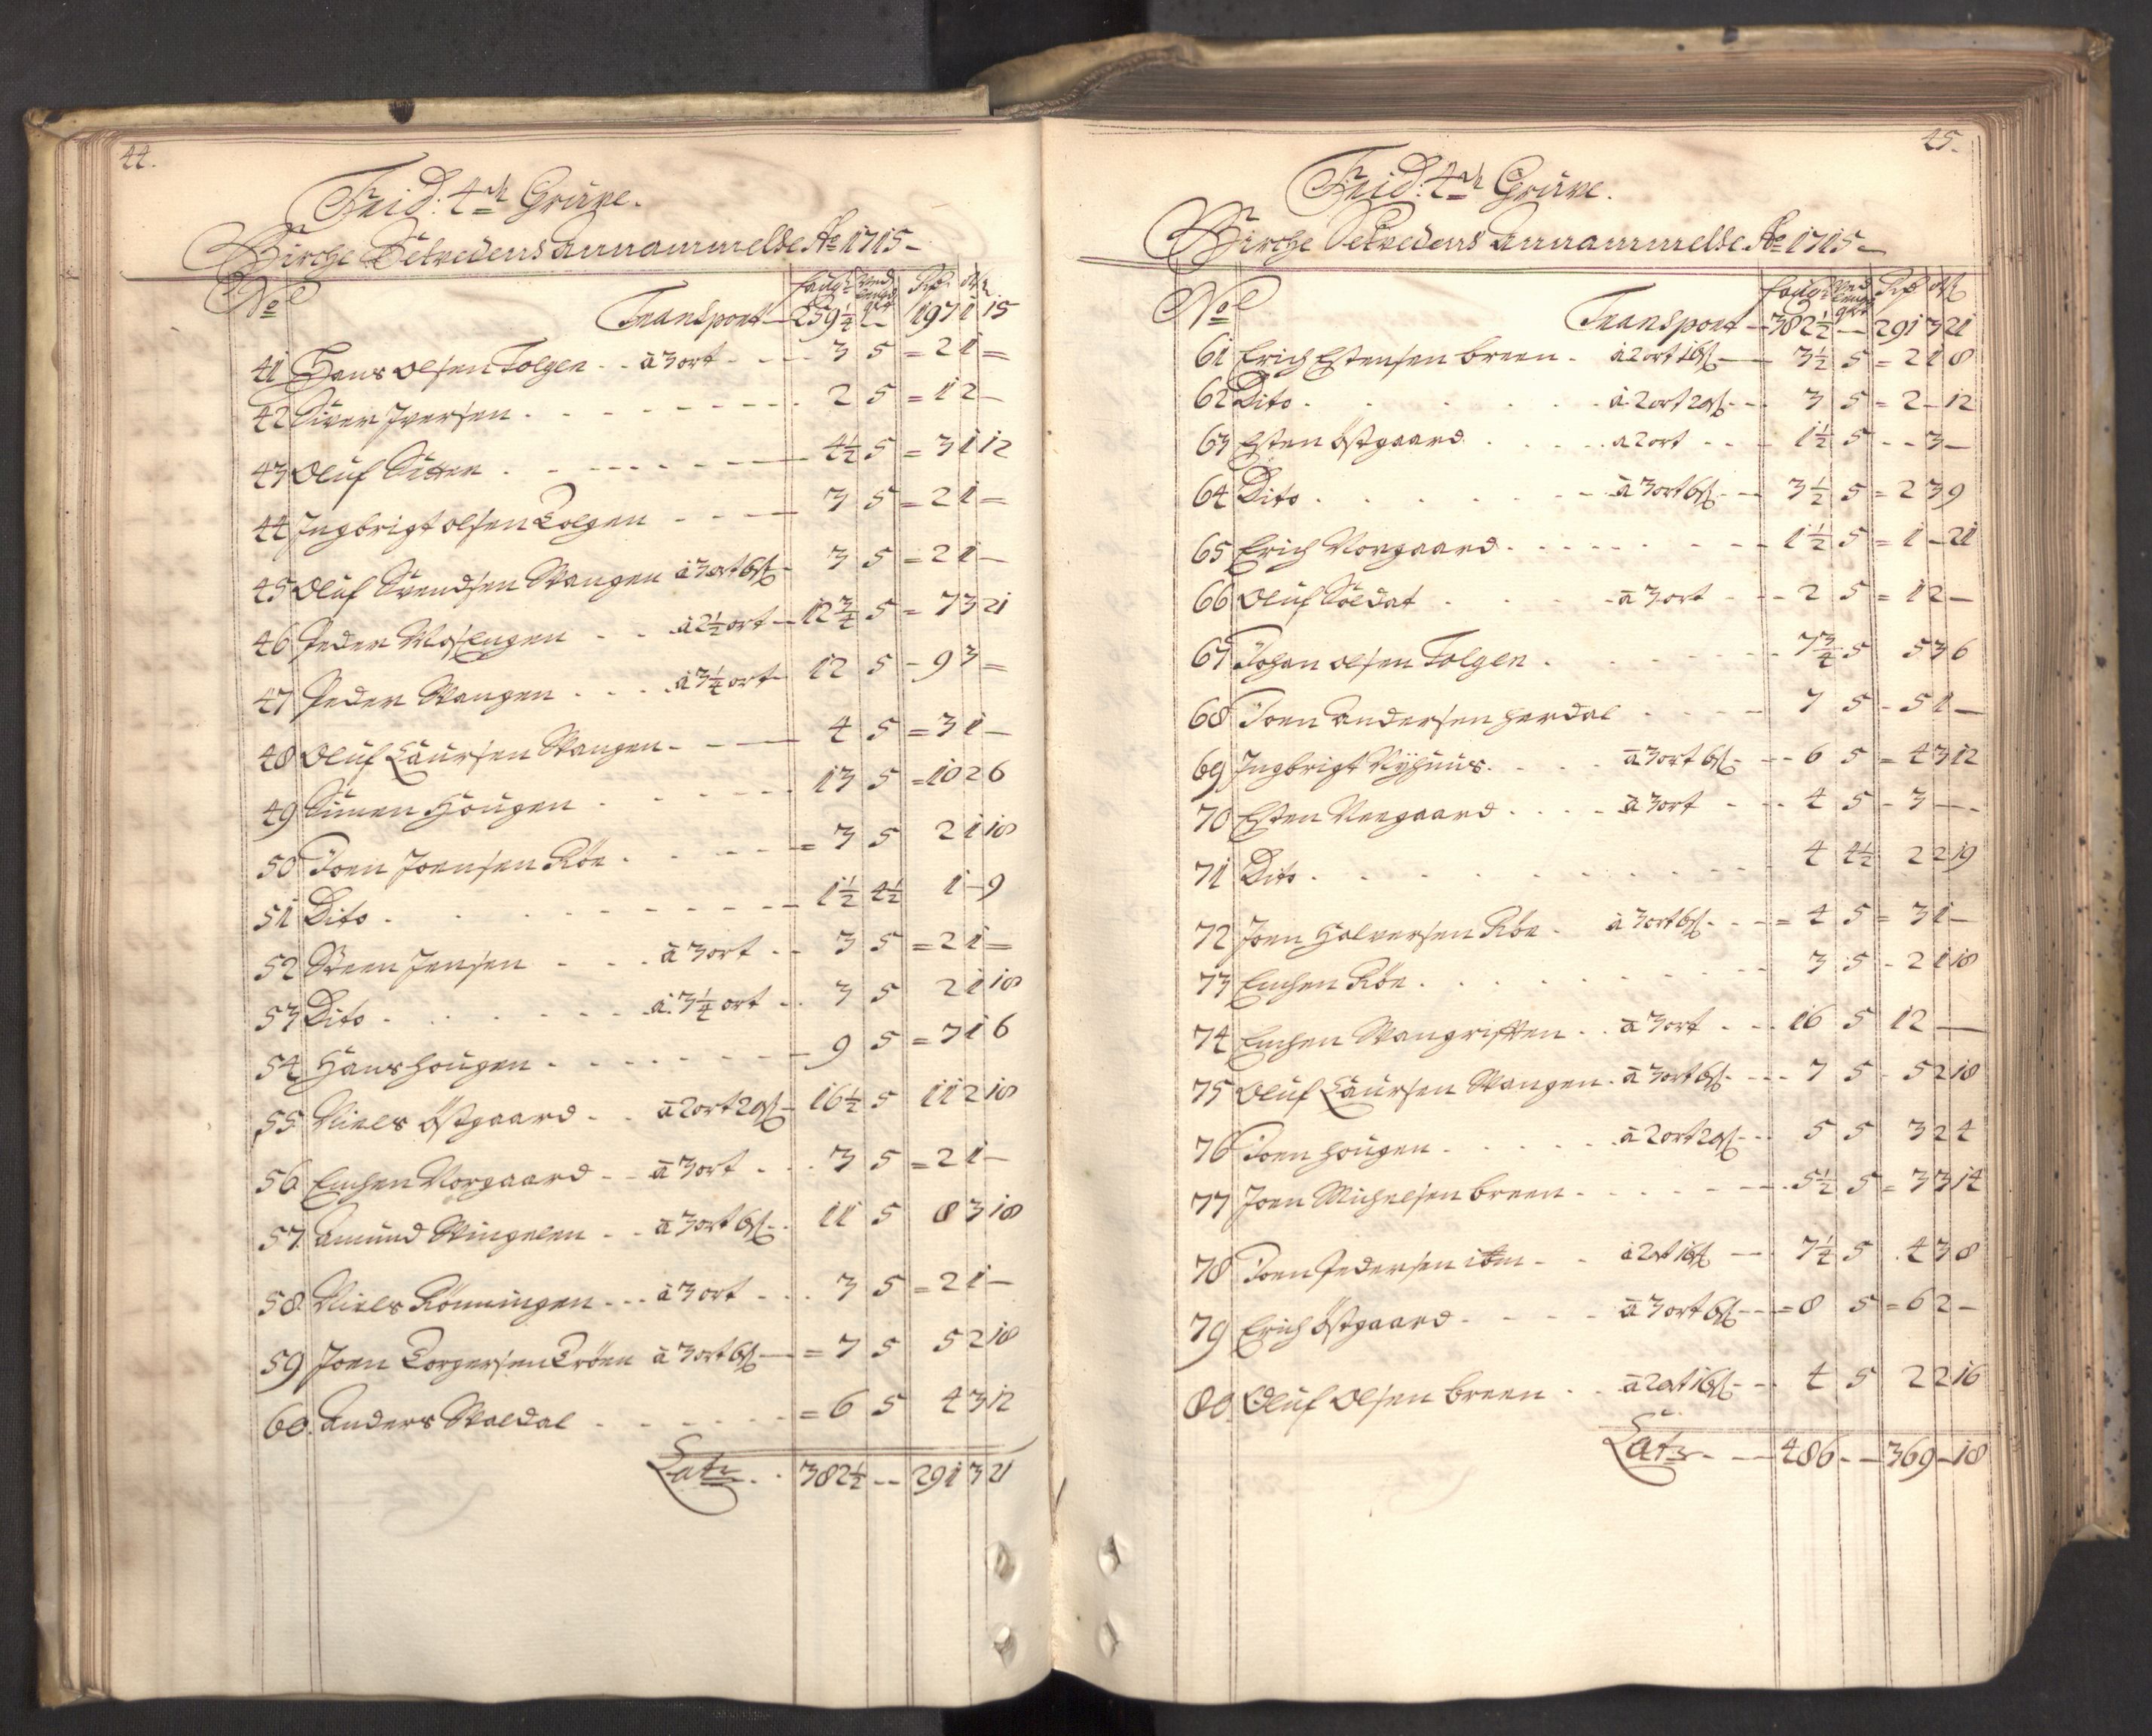 44.
Frid: 4de Grüve.
Bircke Setvedens Annammelse Ao 1715
No Transport 259¼ — 197 1 15
41 Hans Olsen Tolgen . . a 3 ort . . 3 5 = 2 1 =
42 Siver Iversen . . . 2 5 = 1 2 —
43 Oluf Sætter . . . 4½ 5 = 3 1 12
44 Ingbrigt Olsen Tolgen . . . 3 5 = 2 1 =
45 Oluf Svendsen Vangen a 3 ort 6 s — 3 5 = 2 1 —
46 Peder Moslengen . . a 2½ ort — 12¾ 5 = 7 3 21
47 Peder Vangen . . . a 3¼ ort — 12 5 — 9 3 =
48 Oluf Laursen Vangen . . — 4 5 = 3 1 —
49 Simen Hougen . . . 13 5 = 10 2 6
50 Joen Joensen Röe . . . = 3 5 2 1 18
51 Dito . . . 1½ 4½ 1 — 9
52 Steen Jensen . . . a 3 ort . . 3 5 = 2 1 =
53 Dito . . . a 3¼ ort . . 3 5 2 1 18
54 Hans Hougen . . . 9 5 = 7 1 6
55 Niels Östgaard . . a 2 ort 20 s — 16½ 5 11 2 18
56 Embret Norgaard . . a 3 ort . . . 3 5 = 2 1 —
57 Amund Vingelen . . a 3 ort 6 s . . 11 5 8 3 18
58 Niels Rönningen . . . a 3 ort . . . 3 5 = 2 1 —
59 Joen Torgersen Tröen a 3 ort 6 s — = 7 5 5 2 18
60. Anders Vaeldal . . . = 6 5 4 3 12
Latz . . 382½ — 291 3 21
45.
Frid: 4de Grüve.
Bircke Setvedens Annammelse Ao 1715
No Transport — 382½ — 291 3 21
61 Erich Estensen Breen . a 2 ort 16 s — 3½ 5 = 2 1 8
62 Dito . . . a 2 ort 20 s . . 3 5 = 2 — 12
63 Esten Östgaard . . . a 2 ort . . . 1½ 5 — — 3 —
64 Dito . . . a 3 ort 6 s — 3½ 5 = 2 3 9
65 Erich Norgaard . . . 1½ 5 = 1 — 21
66 Oluf Soldat . . . a 3 ort . . . 2 5 = 1 2 —
67 Johan Olsen Tolgen . . . 7¾ 5 5 3 6
68 Joen Andersen Herdal . . . 7 5 — 5 1 —
69 Ingbrigt Nyhuus . . . a 3 ort 6 s . . 6 5 = 4 3 12
70 Esten Neegaard . . . a 3 ort . . . 4 5 — 3 — —
71 Dito . . . 4 4½ 2 2 19
72 Joen Halvorsen Röe . a 3 ort 6 s . . = 4 5 = 3 1 —
73 Embret Röe . . . 3 5 — 2 1 18
74 Embret Vangrösten . . a 3 ort . . . 16 5 12 —
75 Oluf Laursen Vangen . a 3 ort 6 s . . . 7 5 — 5 2 18
76 Joen Hougen . . . a 2 ort 20 s . . . 5 5 3 2 4
77 Joen Michelsen Breen . . . 5½ 5 = 3 3 14
78 Joen Pedersen . . a 2 ort 16 s — 7¼ 5 . 4 3 8
79 Erich Östgaard . . . a 3 ort 6 s — = 8 5 = 6 2 —
80. Oluf Olsen Breen . . a 2 ort 16 s . . 4 5 2 2 16
Latz . . — 486 — — 369 — 18